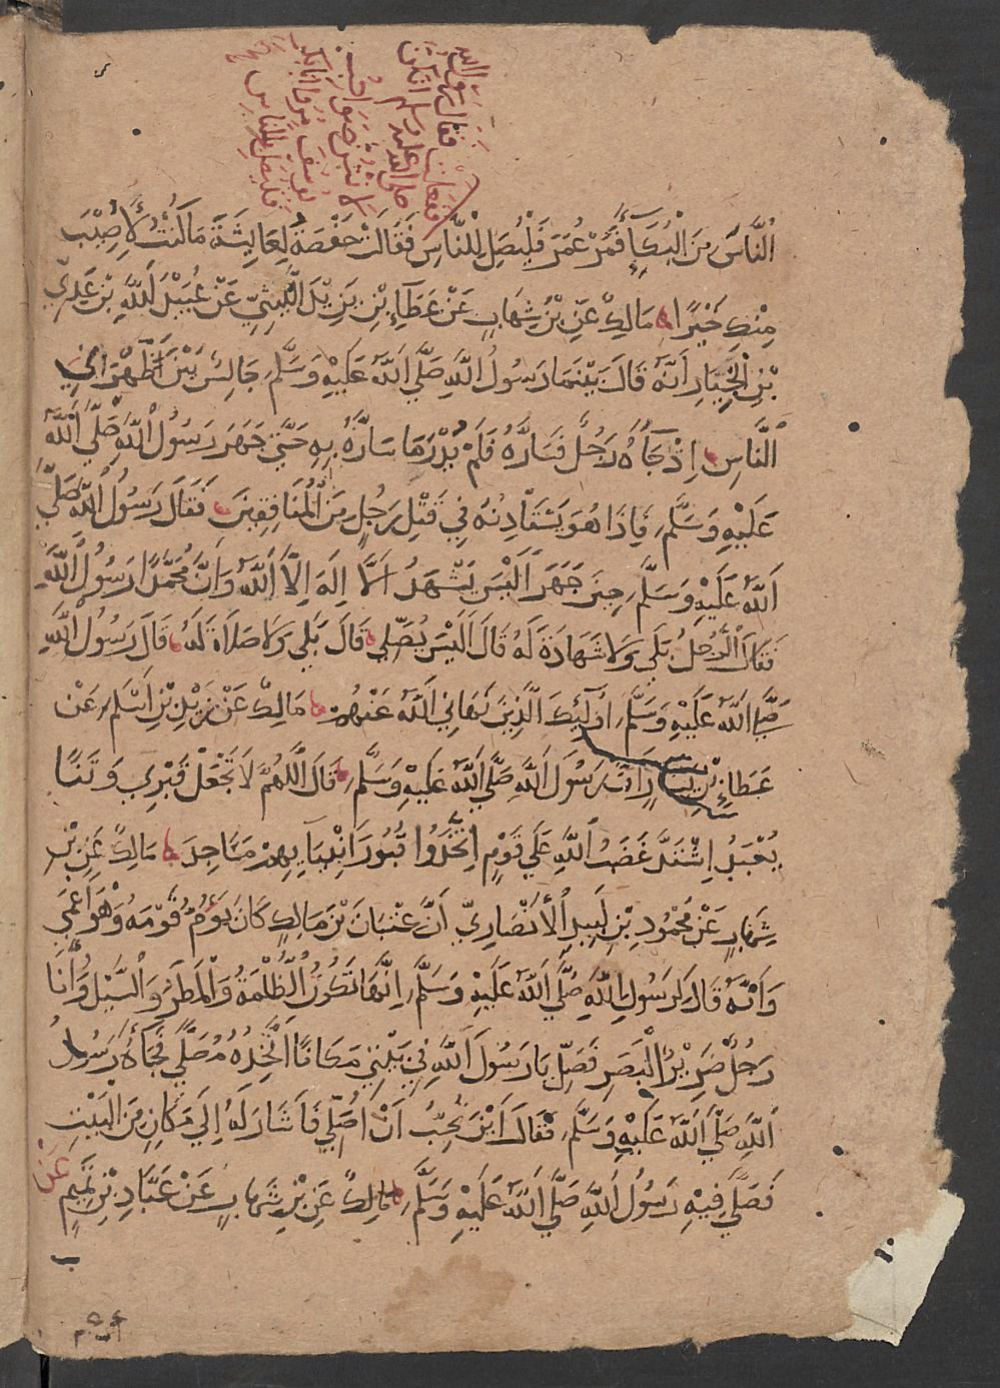 ففعلت فقال رسول الله
صلى الله عليه وسلم انكن
لا نتن صواحب
يوسف مروا ابا بكر
فليصل للناس
النَّاسَ مِنَ الْبُكَآءِ فَمُرْ عُمَرَ فَلْيُصَلِ لِلنَّاسِ فَقَالَتْ حَفْصَةُ لِعَايِشَةَ مَا كُنْتُ لَأُصِيْبَ
مِنْكِ خَيْرًا مَالِكٌ عَنِ بْنِ شِهَابٍ عَنْ عَطَآءِ بْنِ يَزِيْدَ اللَّيْثِيِّ عَنْ عُبَيْدِ اللَّهِ بْنِ عَدِيِّ
بْنِ الْخِيَارِ اَنَّهُ قَالَ بَيْنَمَا رَسُولُ اللَّهِ صَلَّي اللَّهُ عَلَيْهِ وَسَلَّمَ جَالِسٌ بَيْنَ ظَهْرَانَيِ
النَّاسِ اِذْ جَآءَهُ رَجُلٌ فَسَارَّهُ فَلَمْ يُدْرَ مَا سَارَّهُ بِهِ حَتَّي جَهَرَ رَسُولُ اللَّهِ صَلَّي اللَّهُ
عَلَيْهِ وَسَلَّمَ فَاِذَا هُوَ يَسْتَاْذِنُهُ فِي قَتْلِ رَجُلٍ مِنَ الْمُنَافِقِيْنَ فَقَالَ رَسُولُ اللَّهِ صَلَّي
اللَّهُ عَلَيْهِ وَسَلَّمَ حِيْنَ جَهَرَ اَلَيْسَ يَشْهَدُ اَلَّا اِلَهَ اِلَّا اللَّهُ وَاَنَّ مُحَمَّدًا رَسُولُ اللَّهِ
فَقَالَ الرَّجُلُ بَلَي وَلَا شَهَادَةَ لَهُ قَالَ اَلَيْسَ يُصَلِّي قَالَ بَلَي وَلَا صَلَاةَ لَهُ قَالَ رَسُولُ اللَّهِ
صَلَّي اللَّهُ عَلَيْهِ وَسَلَّمَ اُولَئِكَ الَّذِيْنَ نَهَانِي اللَّهُ عَنْهُمْ مَالِكٌ عَنْ زَيْدِ بْنِ اَسْلَمَ عَنْ
عَطَاءِ بْنِ يَسَارٍ اَنَّ رَسُولَ اللَّهِ صَلَّي اللَّهُ عَلَيْهِ وَسَلَّمَ قَالَ اللَّهُمَّ لَا تَجْعَلْ قَبْرِي وَثَنًا
يُعْبَدُ اِشْتَدَّ غَضَبُ اللَّهِ عَلَي قَوْمٍ اِتَّخَذُوا قُبُورَ اَنْبِيَايِهِمْ مَسَاجِدَ مَالِكٌ عَنِ بْنِ
شِهَابٍ عَنْ مَحْمُودِ بْنِ لَبِيدٍ الْأَنْصَارِيِّ اَنَّ عِتْبَانَ بْنَ مَالِكٍ كَانَ يَؤُمُّ قَوْمَهُ وَهُوَ اَعْمَي
وَاَنَّهُ قَالَ لِرَسُولِ اللَّهِ صَلَّي اللَّهُ عَلَيْهِ وَسَلَّمَ اِنَّهَا تَكُونُ الظُّلْمَةُ وَالْمَطَرُ وَالسَّيْلُ وَأَنَا
رَجُلٌ ضَرِيْرُ الْبَصَرِ فَصَلِّ يَا رَسُولَ اللَّهِ فِي بَيْتِي مَكَانًا اَتَّخِذُهُ مُصَلًّي فَجَآءَهُ رَسُولُ
اللَّهِ صَلَّي اللَّهُ عَلَيْهِ وَسَلَّمَ فَقَالَ اَيْنَ تُحِبُّ اَنْ اُصَلِّي فَاَشَارَ لَهُ اِلَي مَكَانٍ مِنَ الْبَيْتِ
فَصَلَّي فِيْهِ رَسُولُ اللَّهِ صَلَّي اللَّهُ عَلَيْهِ وَسَلَّمَ مَالِكٌ عَنِ بْنِ شِهَابٍ عَنْ عَبَّادِ بْنِ تَمِيْمٍ عَنْ